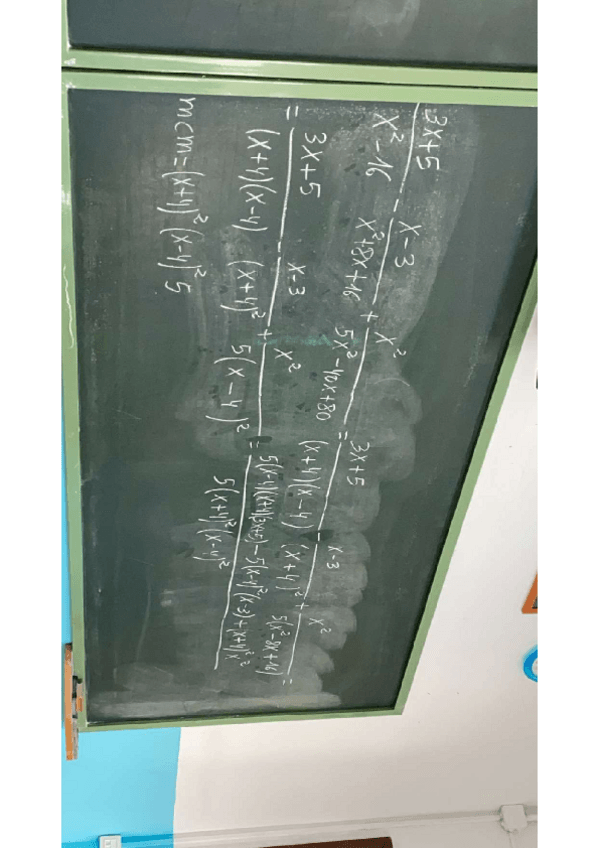 (3x+5)/(x²-16) - (x-3)/(x²+8x+16) + x²/(5x²-40x+80) = (3x+5)/((x+4)(x-4)) - (x-3)/(x+4)² + x²/(5(x²-8x+16)) =
= (3x+5)/((x+4)(x-4)) - (x-3)/(x+4)² + x²/(5(x-4)²) = (5(x-4)(x+4)(3x+5)-5(x-4)²(x-3)+(x+4)²x²)/(5(x+4)²(x-4)²)
mcm=(x+4)²(x-4)²5